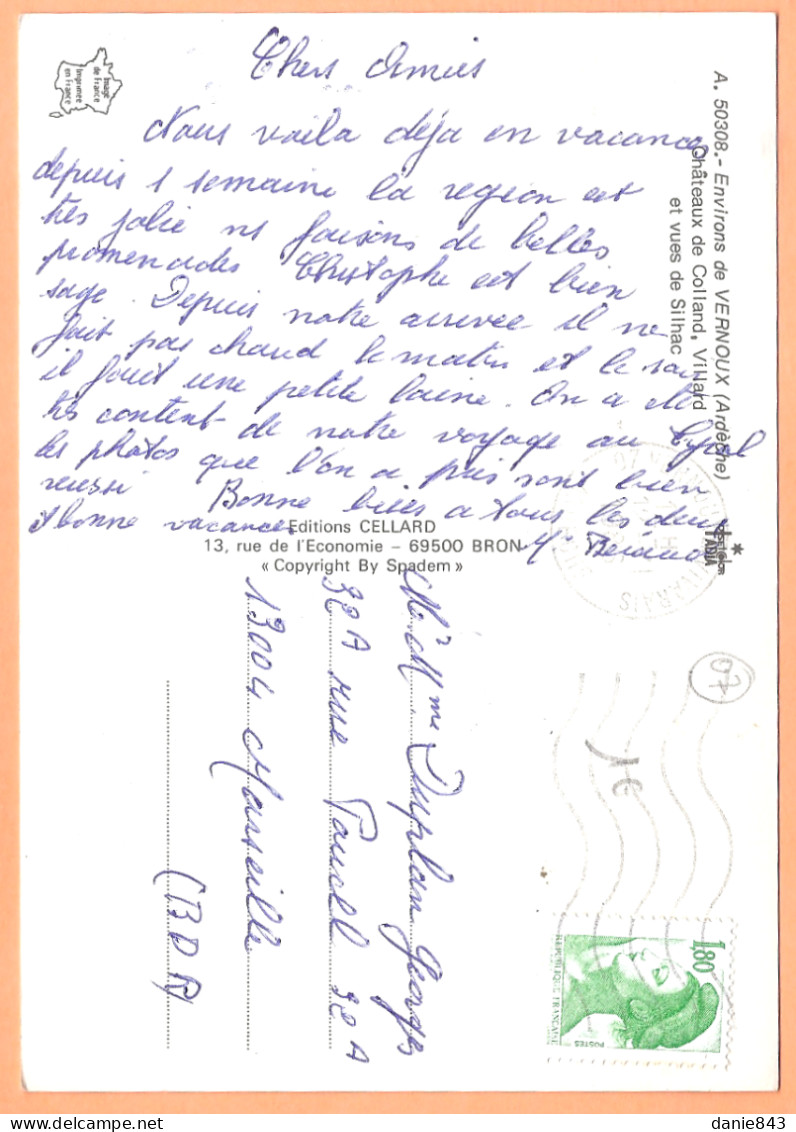 Chers Amies
Nous voila déja en vacances
depuis 1 semaine la region est
très jolie ns faisons de belles
promenades Christophe est bien
sage. Depuis notre arrivée il ne
fait pas chaud le matin et le soir
il faut une petite laine. On a été
très content de notre voyage au Tyrol
les photos que l'on a pris sont bien
reussi Bonne bises a tous les deux
et bonne vacances
A. 50308.- Environs de VERNOUX (Ardèche)
Châteaux de Colland, Villard
et vues de Silhac
Image
de France
Imprimée
en France
Editions CELLARD
13, rue de l'Economie – 69500 BRON
« Copyright By Spadem »
Mr Mme Duplan Georges
32A rue 32A
13004 Marseille
(BDR)
07
1€
1,80
REPUBLIQUE FRANÇAISE
POSTES
danie843